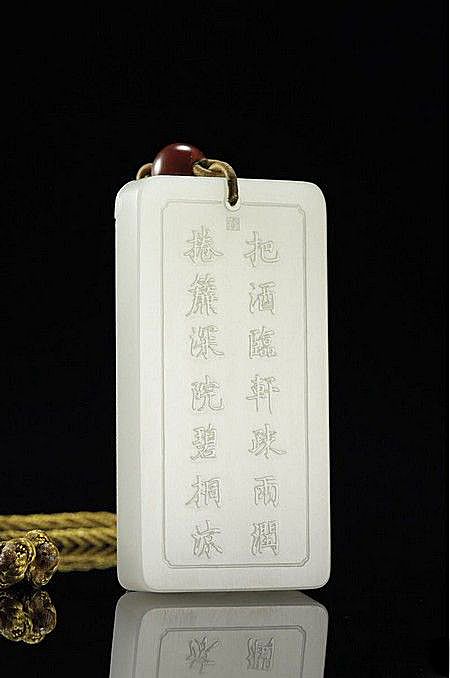 把酒臨軒疎雨潤
捲簾深院碧桐涼